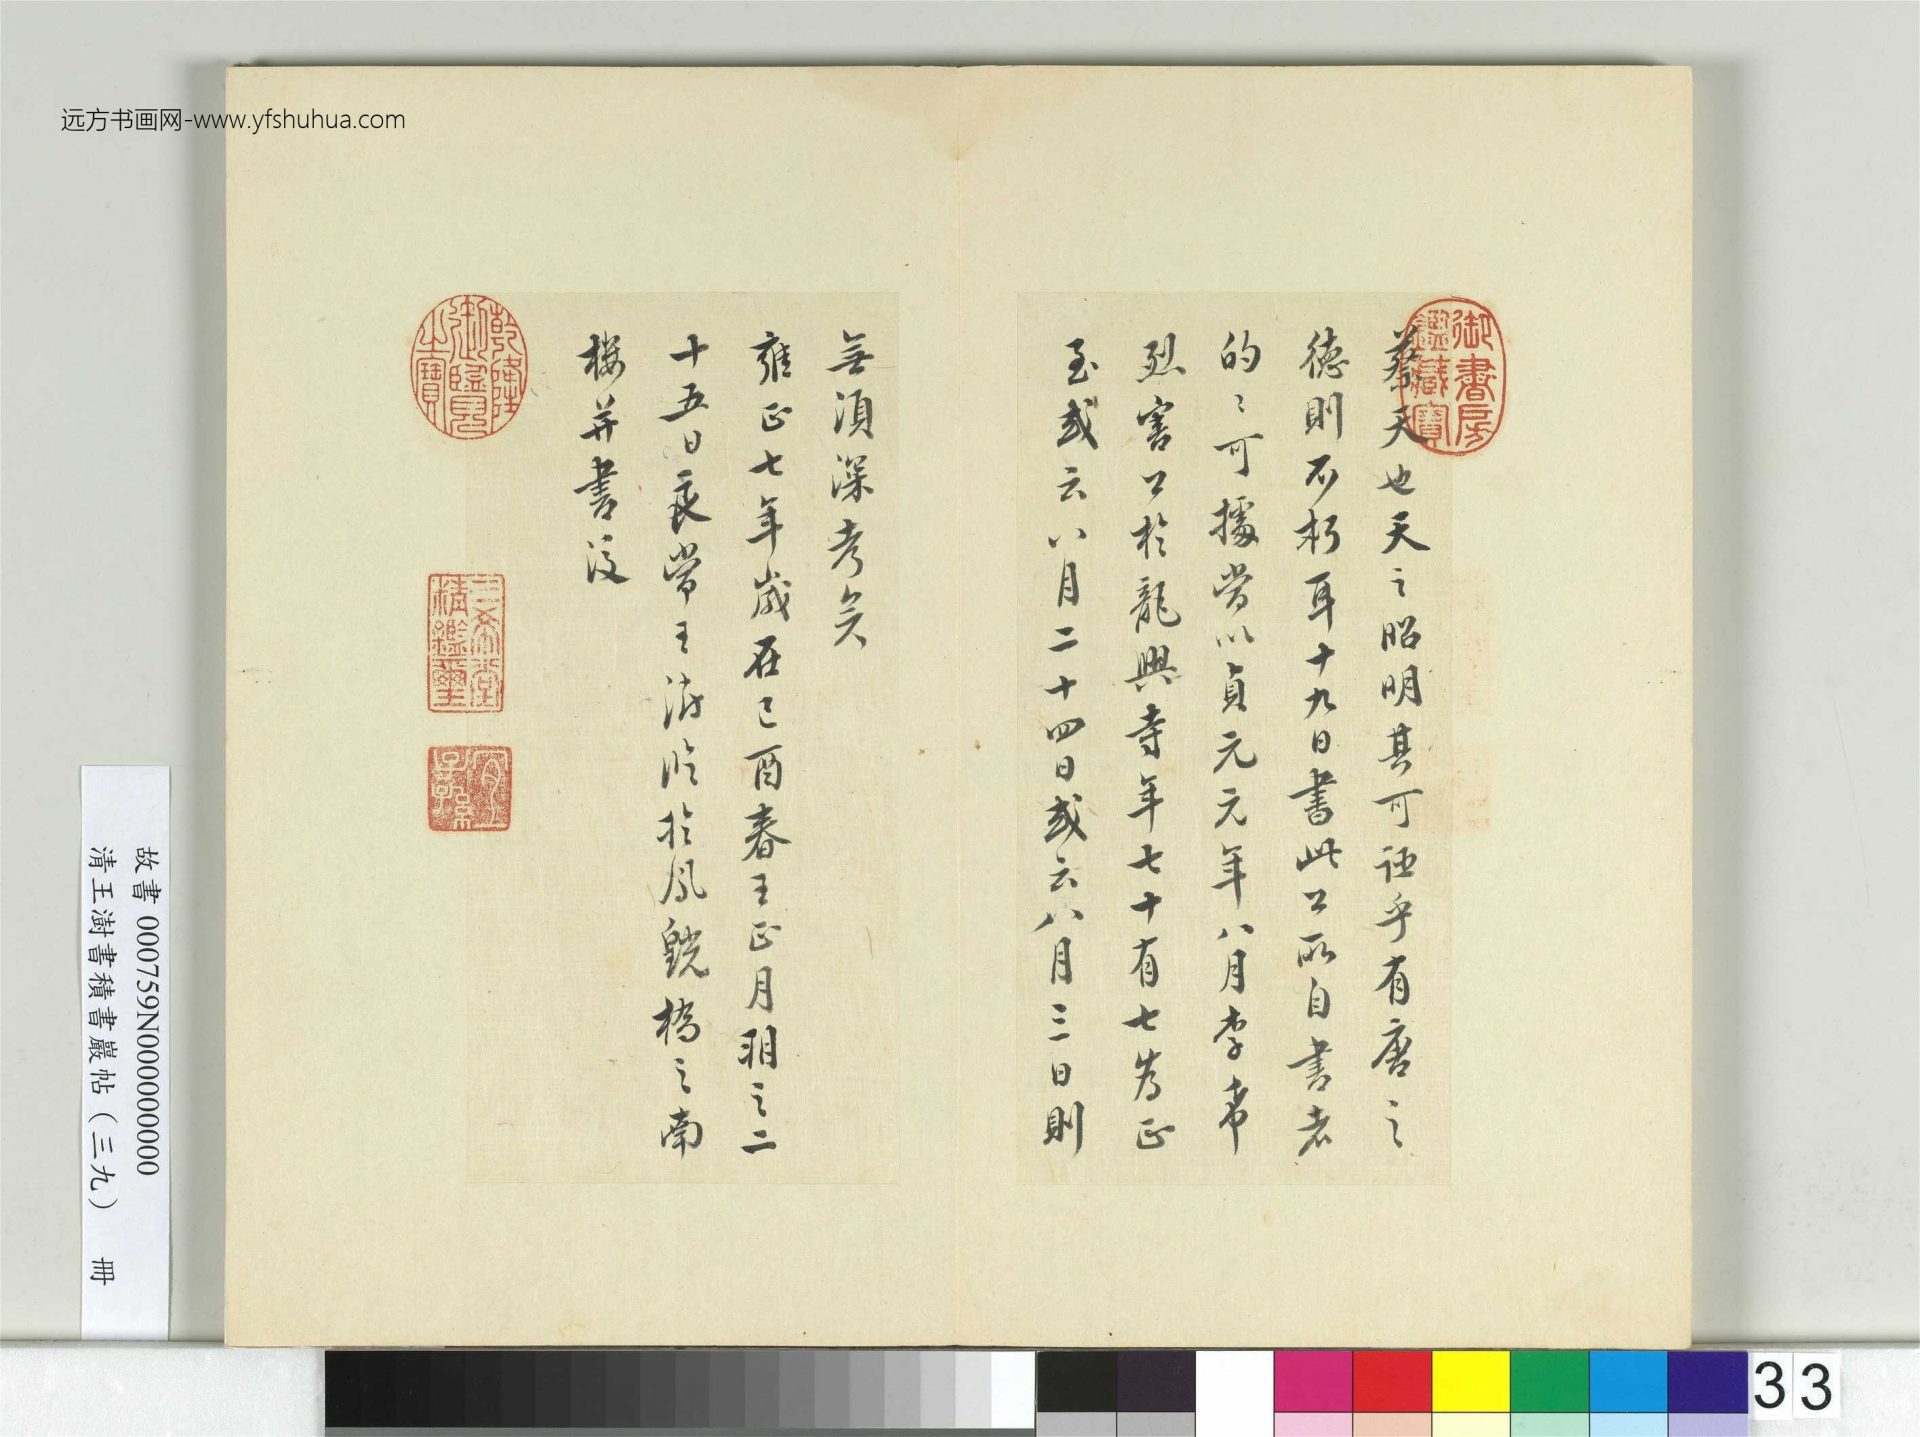 远方书画网-www.yfshuhua.com
御書房鑑藏寶
蔡天也天之昭明其可誣乎有唐之
德則不朽耳十九日書此公所自書者
的〻可據當以貞元元年八月李希
烈害公於龍興寺年七十有七為正
至或云八月二十四日或云八月三日則
無須深考矣
雍正七年歲在己酉春王正月之二
十五日良常王澍臨於鳳橋之南
樓并書後
乾隆御覽之寶
三希堂精鑑璽
宜子孫
故書 000759N000000000
清王澍書積書巖帖（三九） 冊
33